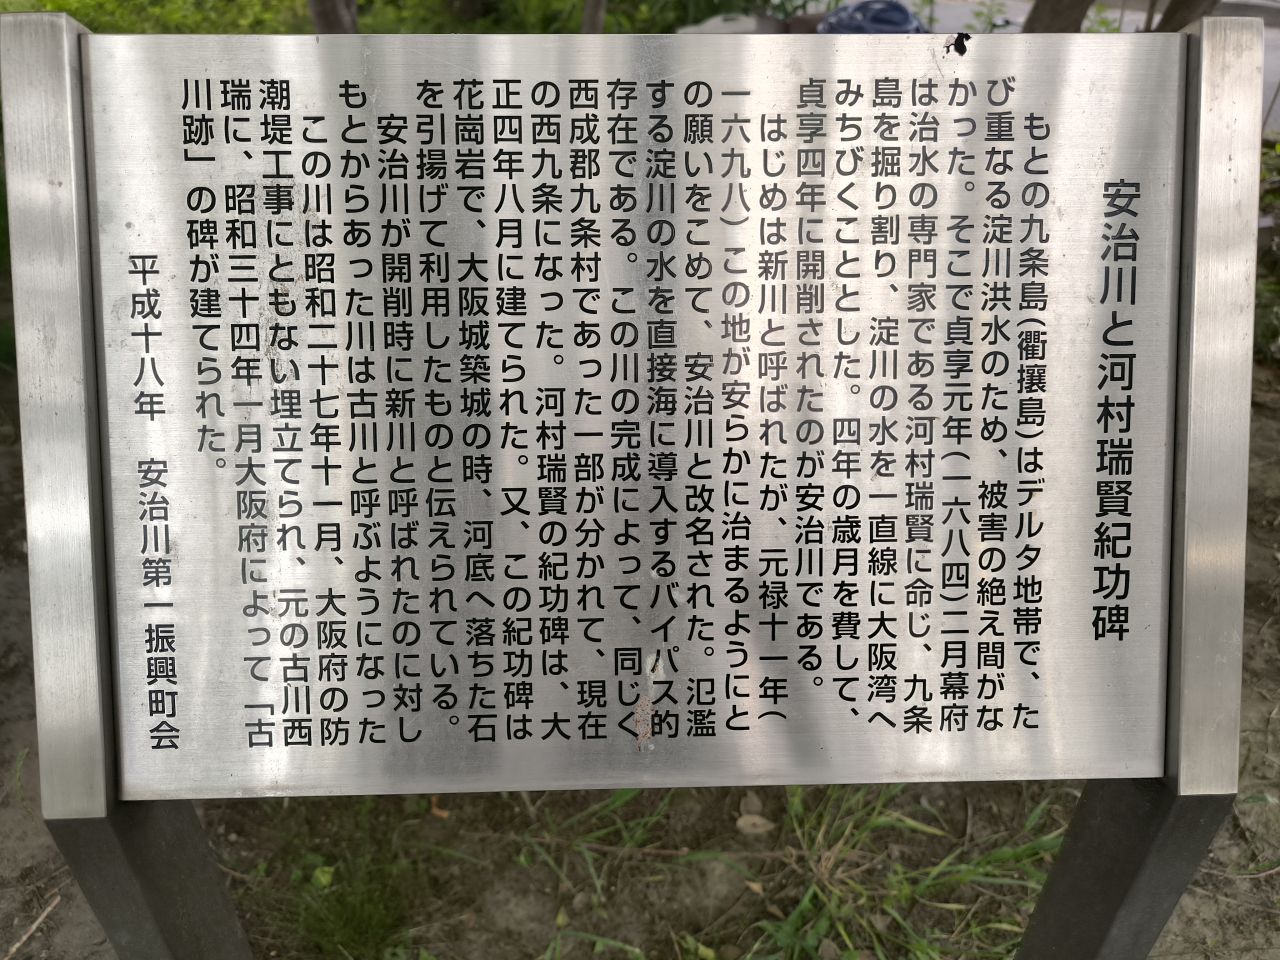 安治川と河村瑞賢紀功碑
もとの九条島(衢壤島)はデルタ地帯で、た
び重なる淀川洪水のため、被害の絶え間がな
かった。そこで貞享元年(一六八四)二月幕府
は治水の専門家である河村瑞賢に命じ、九条
島を掘り割り、淀川の水を一直線に大阪湾へ
みちびくこととした。四年の歳月を費して、
貞享四年に開削されたのが安治川である。
はじめは新川と呼ばれたが、元禄十一年(
一六九八)この地が安らかに治まるようにと
の願いをこめて、安治川と改名された。氾濫
する淀川の水を直接海に導入するバイパス的
存在である。この川の完成によって、同じく
西成郡九条村であった一部が分かれて、現在
の西九条になった。河村瑞賢の紀功碑は、大
正四年八月に建てられた。又、この紀功碑は
花崗岩で、大阪城築城の時、河底へ落ちた石
を引揚げて利用したものと伝えられている。
安治川が開削時に新川と呼ばれたのに対し
もとからあった川は古川と呼ぶようになった
この川は昭和二十七年十一月、大阪府の防
潮堤工事にともない埋立てられ、元の古川西
瑞に、昭和三十四年一月大阪府によって「古
川跡」の碑が建てられた。
平成十八年 安治川第一振興町会